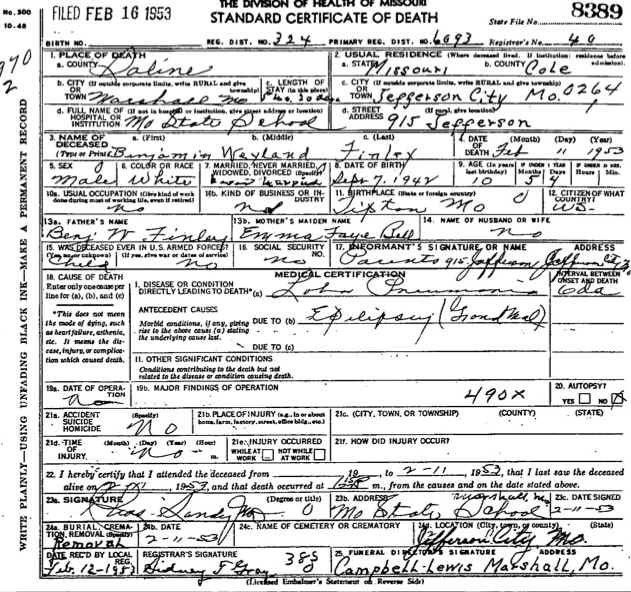 No. 300
10-48
FILED FEB 16 1953
THE DIVISION OF HEALTH OF MISSOURI
STANDARD CERTIFICATE OF DEATH
State File No. 8389
BIRTH NO.
REG. DIST. NO. 324
PRIMARY REG. DIST. NO. 6093
Registrar's No. 40
1. PLACE OF DEATH
a. COUNTY Saline
2. USUAL RESIDENCE (Where deceased lived. If institution: residence before admission).
a. STATE Missouri b. COUNTY Cole
b. CITY (If outside corporate limits, write RURAL and give township)
OR TOWN Marshall Mo
c. LENGTH OF STAY (in this place)
c. CITY (If outside corporate limits, write RURAL and give township)
OR TOWN Jefferson City Mo. 0264
d. FULL NAME OF (If not in hospital or institution, give street address or location)
HOSPITAL OR INSTITUTION Mo State School
d. STREET ADDRESS (If rural, give location)
915 Jefferson
3. NAME OF DECEASED (Type or Print)
a. (First) b. (Middle) c. (Last)
Benjamin Weyland Finley
4. DATE OF DEATH (Month) (Day) (Year)
Feb 11 1953
5. SEX Male
6. COLOR OR RACE White
7. MARRIED, NEVER MARRIED, WIDOWED, DIVORCED (Specify)
8. DATE OF BIRTH Sept 7, 1942
9. AGE (In years last birthday) 10
IF UNDER 1 YEAR Months 5 Days 4
IF UNDER 24 HRS. Hours Min.
10a. USUAL OCCUPATION (Give kind of work done during most of working life, even if retired)
No
10b. KIND OF BUSINESS OR INDUSTRY
No
11. BIRTHPLACE (State or foreign country)
Tipton Mo 0
12. CITIZEN OF WHAT COUNTRY?
US
13a. FATHER'S NAME
Benj W. Finley
13b. MOTHER'S MAIDEN NAME
Emma Faye Bell
14. NAME OF HUSBAND OR WIFE
No
15. WAS DECEASED EVER IN U.S. ARMED FORCES?
(Yes, no, or unknown) (If yes, give war or dates of service)
Child No
16. SOCIAL SECURITY NO.
No
17. INFORMANT'S SIGNATURE OR NAME ADDRESS
Parents 915 Jefferson Jefferson City
18. CAUSE OF DEATH
Enter only one cause per line for (a), (b), and (c)
*This does not mean the mode of dying, such as heart failure, asthenia, etc. It means the disease, injury, or complication which caused death.
MEDICAL CERTIFICATION
INTERVAL BETWEEN ONSET AND DEATH
I. DISEASE OR CONDITION DIRECTLY LEADING TO DEATH* (a) Lobar Pneumonia
6 da
ANTECEDENT CAUSES
Morbid conditions, if any, giving rise to the above cause (a) stating the underlying cause last.
DUE TO (b) Epilepsy (Grand Mal)
DUE TO (c)
II. OTHER SIGNIFICANT CONDITIONS
Conditions contributing to the death but not related to the disease or condition causing death.
19a. DATE OF OPERATION No
19b. MAJOR FINDINGS OF OPERATION
490X
20. AUTOPSY?
YES NO X
21a. ACCIDENT SUICIDE HOMICIDE (Specify) No
21b. PLACE OF INJURY (e.g., in or about home, farm, factory, street, office bldg., etc.)
21c. (CITY, TOWN, OR TOWNSHIP) (COUNTY) (STATE)
21d. TIME OF INJURY (Month) (Day) (Year) (Hour) m.
No
21e. INJURY OCCURRED
WHILE AT WORK NOT WHILE AT WORK
21f. HOW DID INJURY OCCUR?
22. I hereby certify that I attended the deceased from 19 to 2-11, 1953, that I last saw the deceased
alive on 2-11, 1953, and that death occurred at m., from the causes and on the date stated above.
23a. SIGNATURE (Degree or title)
Chas Sandy MD 0
23b. ADDRESS Marshall, Mo
Mo State School
23c. DATE SIGNED
2-11-53
24a. BURIAL, CREMATION, REMOVAL (Specify)
Removal
24b. DATE
2-11-53
24c. NAME OF CEMETERY OR CREMATORY
24d. LOCATION (City, town, or county) (State)
Jefferson City Mo.
DATE REC'D BY LOCAL REG.
Feb. 12-1953
REGISTRAR'S SIGNATURE
Sidney T Gray 385 0
25. FUNERAL DIRECTOR'S SIGNATURE ADDRESS
Campbell-Lewis Marshall, Mo.
(Licensed Embalmer's Statement on Reverse Side)
WRITE PLAINLY—USING UNFADING BLACK INK—MAKE A PERMANENT RECORD